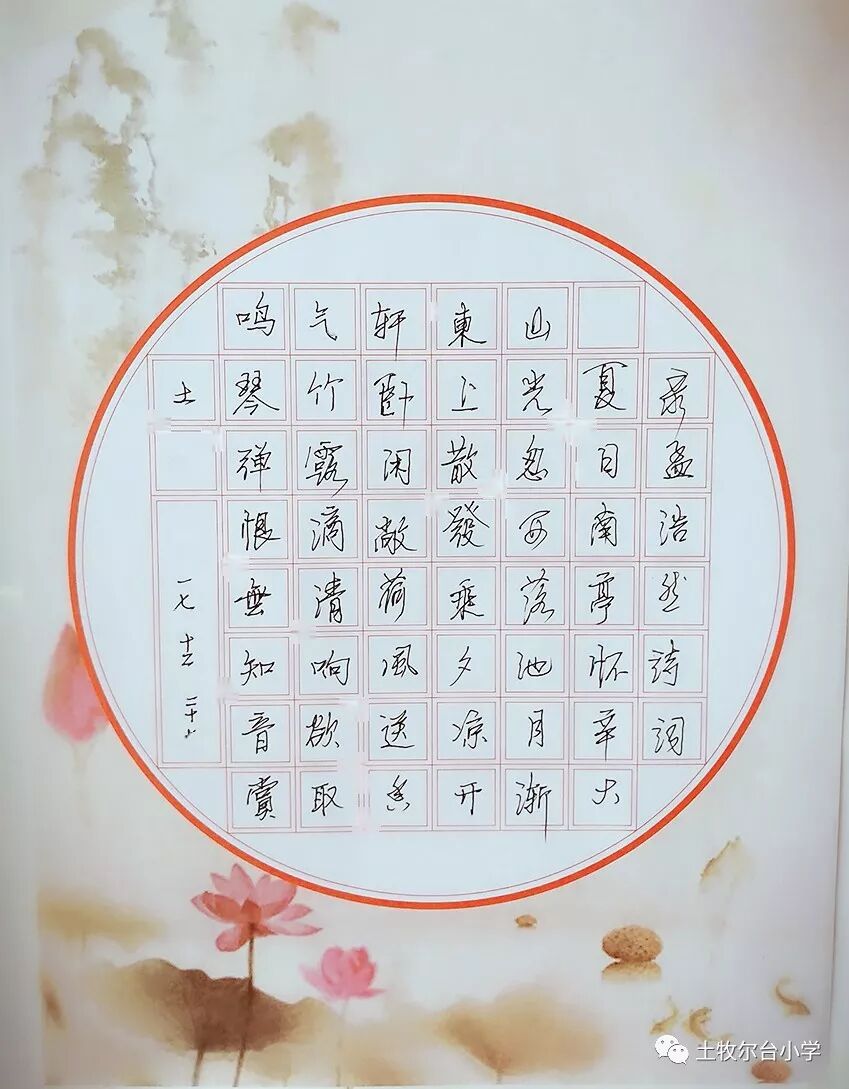 录孟浩然诗词
夏日南亭怀辛大
山光忽西落池月渐
東上散發乘夕凉开
轩卧闲敞荷風送香
气竹露滴清响欲取
鸣琴弹恨無知音賞
土
一七 十二 二十七
土牧尔台小学